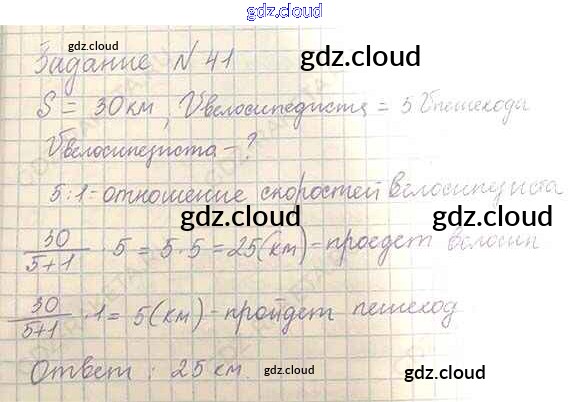 gdz.cloud
gdz.cloud
Задание N 41
gdz.cloud
S = 30 км, Vвелосипедиста = 5 Vпешехода
Vвелосипедиста - ?
5:1 = отношение скоростей велосипедиста
gdz.cloud
gdz.cloud
30/5+1 · 5 = 5 · 5 = 25 (км) - проедет велосип
30/5+1 · 1 = 5 (км) - пройдет пешеход
Ответ : 25 км.
gdz.cloud
gdz.cloud